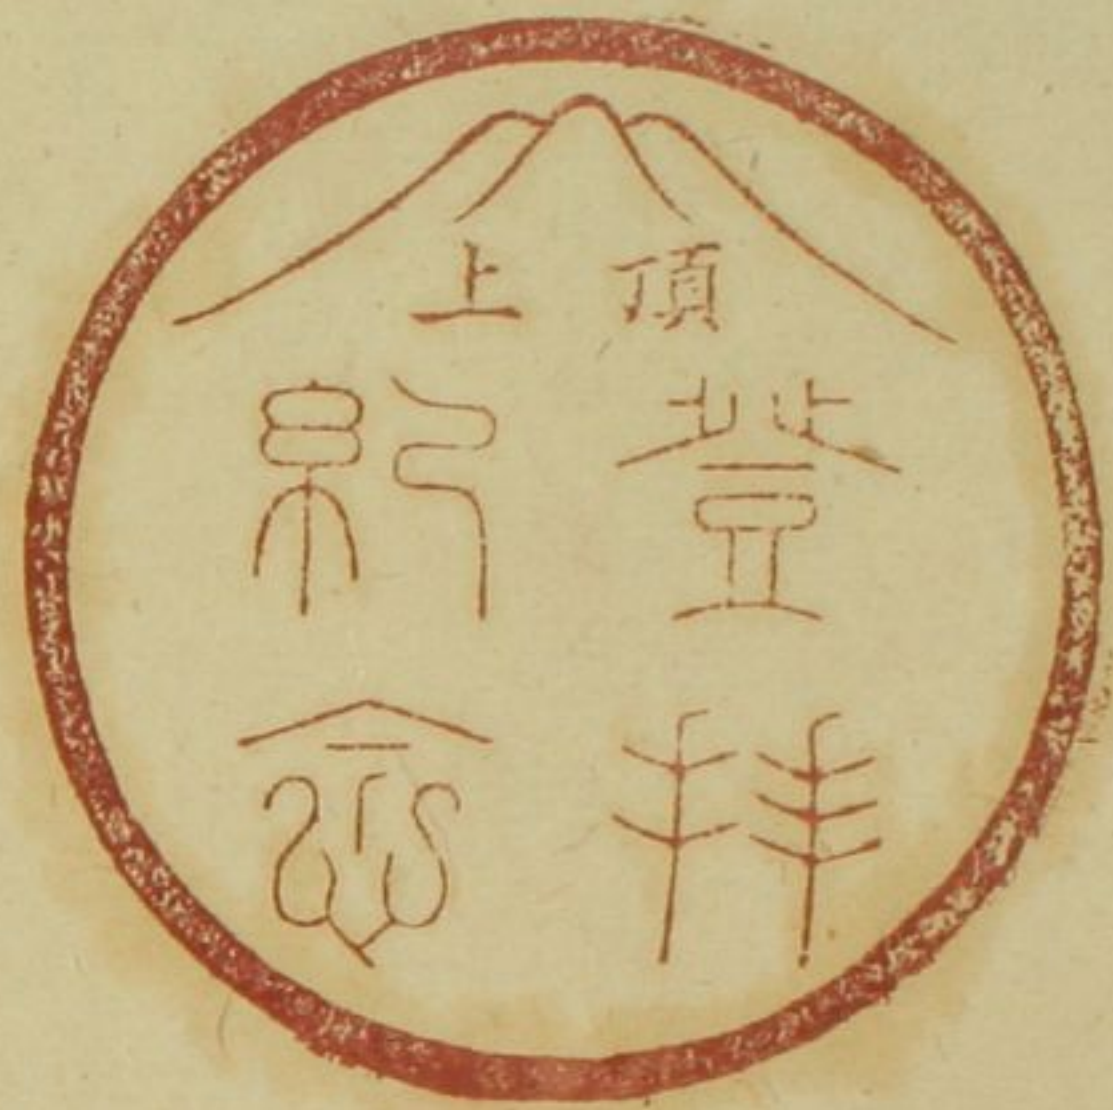 頂上
登拝
紀念